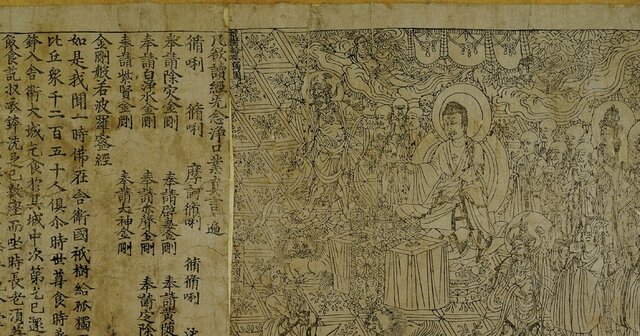 凡欲讀經先念淨口業真言一遍
脩唎 脩唎 摩訶脩唎 脩脩唎
奉請除灾金剛 奉請辟毒金剛 奉請黃隨
奉請白淨水金剛 奉請赤聲金剛 奉請定除
奉請紫賢金剛 奉請大神金剛
金剛般若波羅蜜經
如是我聞一時佛在舍衛國祇樹給孤獨
比丘衆千二百五十人俱尒時世尊食時
鉢入舍衛大城乞食於其城中次第乞已還
飯食訖収衣鉢洗足已敷座而坐時長老須菩